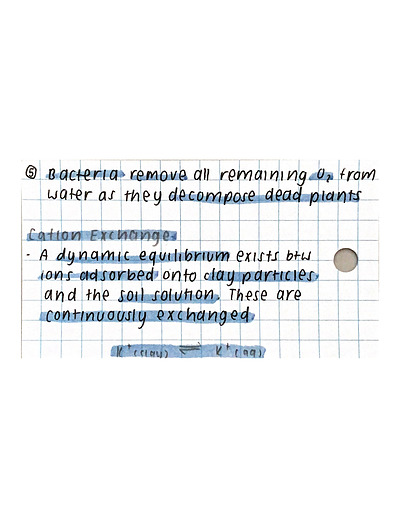 ⑤ Bacteria remove all remaining O₂ from
water as they decompose dead plants
Cation Exchange
- A dynamic equilibrium exists btw
ions adsorbed onto clay particles
and the soil solution. These are
continuously exchanged
K⁺(clay) ⇌ K⁺(aq)